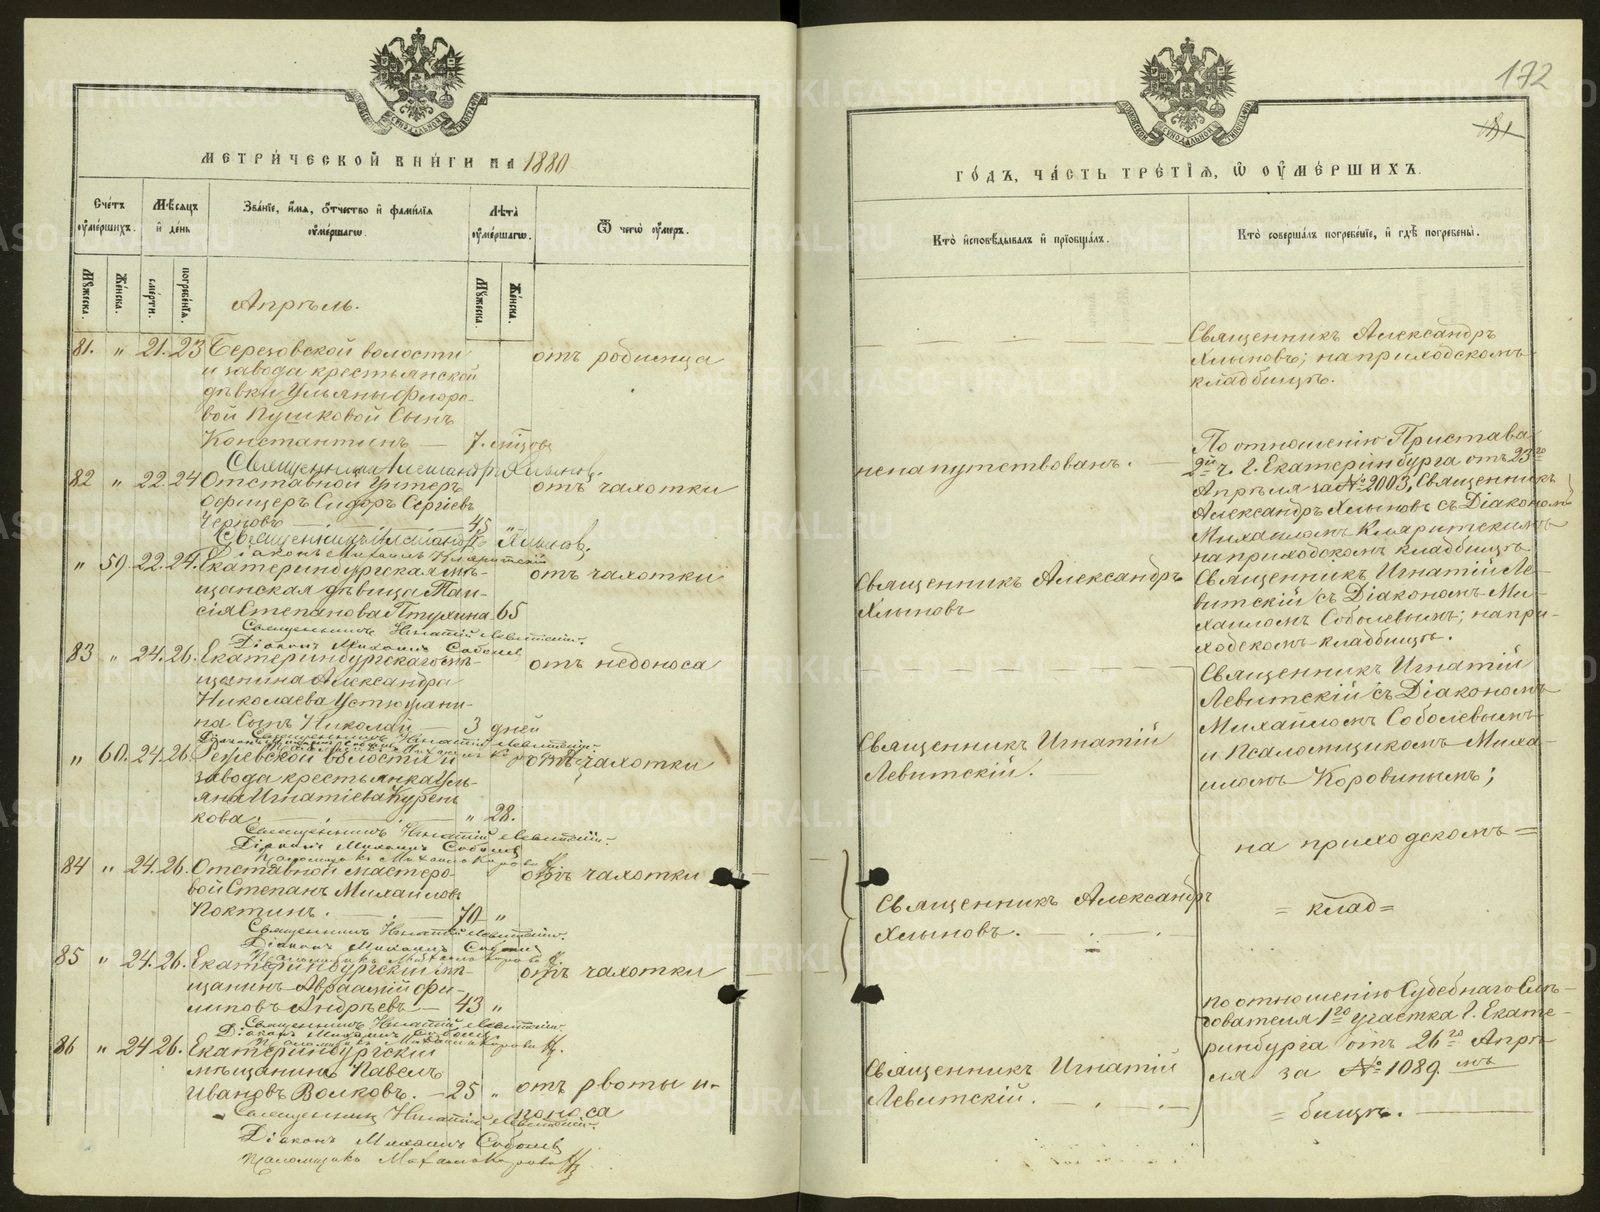 МЕТРИЧЕСКОЙ КНИГИ НА 1880
Счетъ умершихъ.
Мѣсяцъ и день
Званіе, имя, отчество и фамилія умершаго.
Лѣта умершаго.
Ѿ чего умеръ.
Мужеска.
Женска.
смерти.
погребенія.
Мужеска.
Женска.
Апрѣль.
81. " 21. 23 Березовской волости отъ родимца
и завода крестьянской
дѣвки Ульяны Флоро-
вой Пушковой Сынъ
Константинъ — 7. мѣсяцовъ
Священникъ Александръ Хлыновъ.
82 " 22. 24 Отставной Унтеръ отъ чахотки
офицеръ Сидоръ Сергѣевъ
Черновъ — 45 "
Священникъ Александръ Хлыновъ.
Діаконъ Михаилъ Кляритскій
" 59. 22. 24. Екатеринбургская мѣ- отъ чахотки
щанская дѣвица Таи-
сія Степанова Птухина 65
Священникъ Игнатій Левитскій.
Діаконъ Михаилъ Соболев
83 " 24. 26. Екатеринбургскаго мѣ- отъ недоноса
щанина Александра
Николаева Устюжани-
на Сынъ Николай — 3 дней
Священникъ Игнатій Левитскій.
" 60. 24. 26. Режевской волости и отъ чахотки
завода крестьянка Уль-
яна Игнатіева Курень
кова. " 28.
Священникъ Игнатій Левитскій.
Діаконъ Михаилъ Соболев
Псаломщикъ Михаилъ Коровин
84 " 24. 26. Отставной мастеро- отъ чахотки
вой Степанъ Михаиловъ
Локтинъ. — 70 "
Священникъ Игнатій Левитскій.
Діаконъ Михаилъ Соболев
Псаломщикъ Михаилъ Коровин
85 " 24. 26. Екатеринбургскій мѣ- отъ чахотки
щанинъ Авраамій Фи-
липовъ Андрѣевъ — 43 "
Священникъ Игнатій Левитскій.
Діаконъ Михаилъ Соболев
Псаломщикъ Михаилъ Коровин
86 " 24 26. Екатеринбургскій
мѣщанинъ Павелъ
Ивановъ Волковъ. — 25 " отъ рвоты и
поноса
Священникъ Игнатій Левитскій.
Діаконъ Михаилъ Соболев
Псаломщикъ Михаилъ Коровин
172
181
ГОДЪ, ЧАСТЬ ТРЕТІЯ, Ѡ УМЕРШИХЪ.
Кто исповѣдывалъ и пріобщалъ.
Кто совершалъ погребеніе, и гдѣ погребены.
Священникъ Александръ
Хлыновъ; на приходскомъ
кладбищѣ.
не напутствованъ.
По отношенію Пристава
2й ч. г. Екатеринбурга отъ 23го
Апрѣля за № 2003, Священникъ
Александръ Хлыновъ съ Діакономъ
Михаиломъ Кляритскимъ
на приходскомъ кладбищѣ
Священникъ Александръ
Хлыновъ
Священникъ Игнатій Ле-
витскій съ Діакономъ Ми-
хаиломъ Соболевымъ; на при-
ходскомъ кладбищѣ.
Священникъ Игнатій
Левитскій съ Діакономъ
Михайломъ Соболевымъ
и Псаломщикомъ Миха-
иломъ Коровинымъ;
Священникъ Игнатій
Левитскій.
на приходскомъ =
Священникъ Александръ
Хлыновъ.
= клад =
по отношенію Судебнаго Слѣ-
дователя 1го участка г. Екате-
ринбурга отъ 26го Апрѣ-
ля за № 1089
Священникъ Игнатій
Левитскій.
= бищѣ.
METRIKI.GASO-URAL.RU